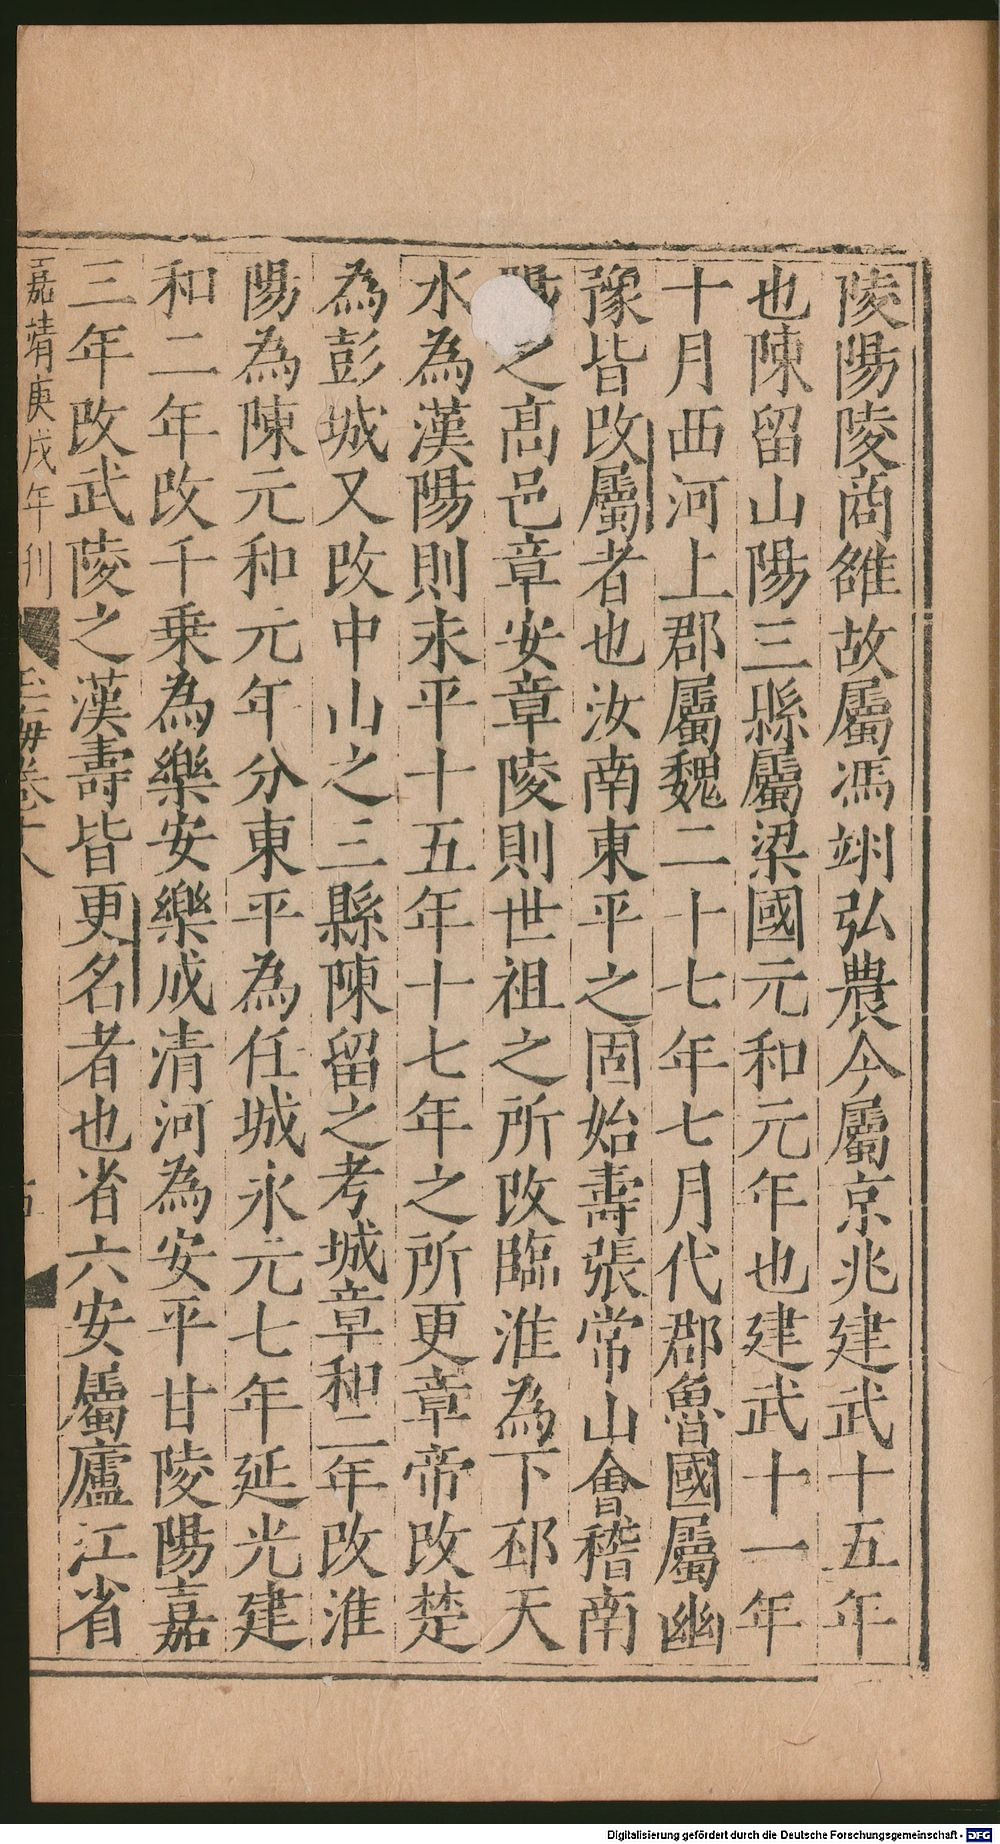 陵陽陵商雒故屬馮翊弘農今屬京兆建武十五年
也陳留山陽三縣屬梁國元和元年也建武十一年
十月西河上郡屬魏二十七年七月代郡魯國屬幽
豫皆改屬者也汝南東平之固始壽張常山會稽南
之高邑章安章陵則世祖之所改臨淮為下邳天
水為漢陽則永平十五年十七年之所更章帝改楚
為彭城又改中山之三縣陳留之考城章和二年改淮
陽為陳元和元年分東平為任城永元七年延光建
和二年改千乗為樂安樂成清河為安平甘陵陽嘉
三年改武陵之漢壽皆更名者也省六安屬廬江省
嘉靖庚戌年刊
玉海卷十八
Digitalisierung gefördert durch die Deutsche Forschungsgemeinschaft - DFG